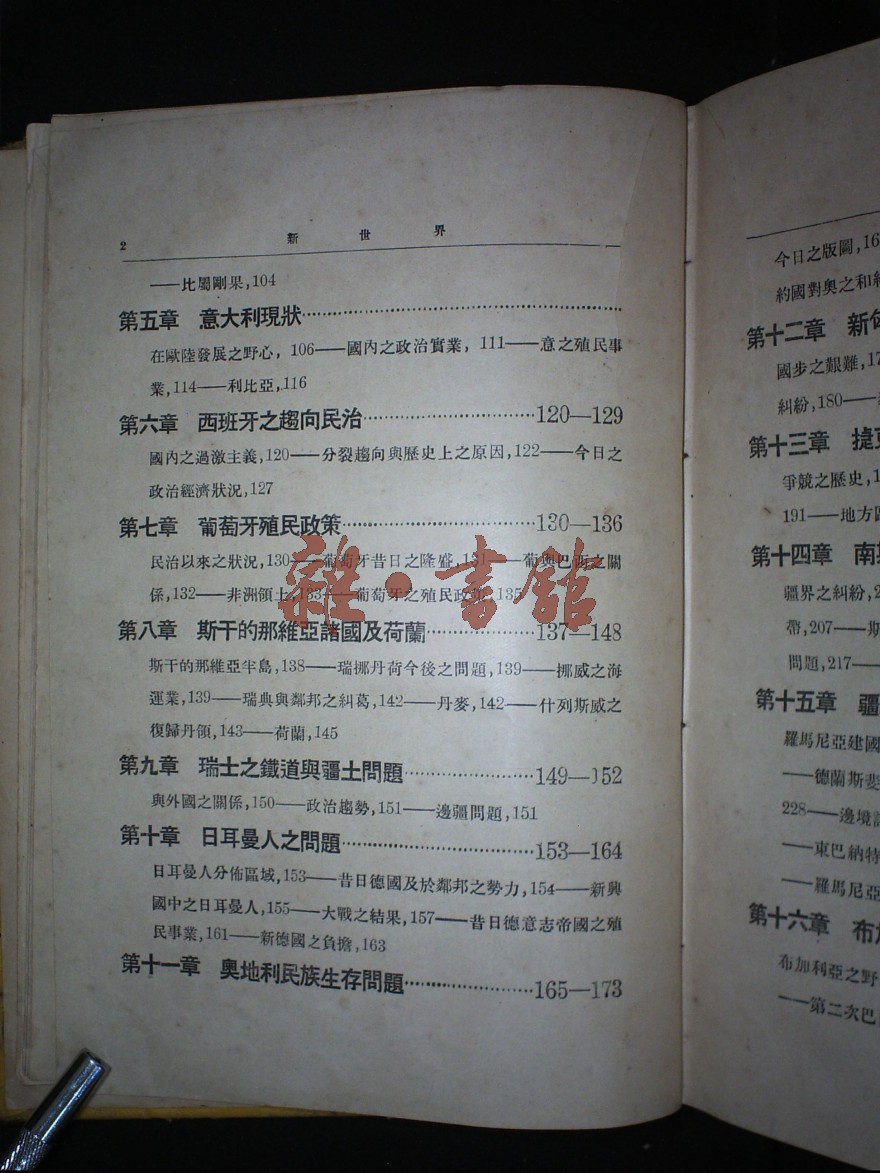 2 新世界
——比屬剛果,104
第五章 意大利現狀
在歐陸發展之野心, 106——國內之政治實業, 111——意之殖民事
業,114——利比亞,116
第六章 西班牙之趨向民治 120—129
國內之過激主義,120——分裂趨向與歷史上之原因,122——今日之
政治經濟狀況,127
第七章 葡萄牙殖民政策 130—136
民治以來之狀況,130——葡萄牙昔日之隆盛,131——葡與巴西之關
係,132——非洲領土,133——葡萄牙之殖民政策,135
第八章 斯干的那維亞諸國及荷蘭 137—148
斯干的那維亞半島,138——瑞挪丹荷今後之問題,139——挪威之海
運業,139——瑞典與鄰邦之糾葛,142——丹麥,142——什列斯威之
復歸丹領,143——荷蘭,145
第九章 瑞士之鐵道與疆土問題 149—152
與外國之關係,150——政治趨勢,151——邊疆問題,151
第十章 日耳曼人之問題 153—164
日耳曼人分佈區域,153——昔日德國及於鄰邦之勢力,154——新興
國中之日耳曼人,155——大戰之結果,157——昔日德意志帝國之殖
民事業,161——新德國之負擔,163
第十一章 奧地利民族生存問題 165—173
雜·書館
今日之版圖,16
約國對奧之和
第十二章 新
國步之艱難,17
糾紛,180——
第十三章 捷
爭競之歷史,1
191——地方
第十四章 南
疆界之糾紛,2
帶,207——斯
問題,217——
第十五章 疆
羅馬尼亞建國
——德蘭斯斐
228——邊境
——東巴納特
——羅馬尼亞
第十六章 布加
布加利亞之野
——第二次巴